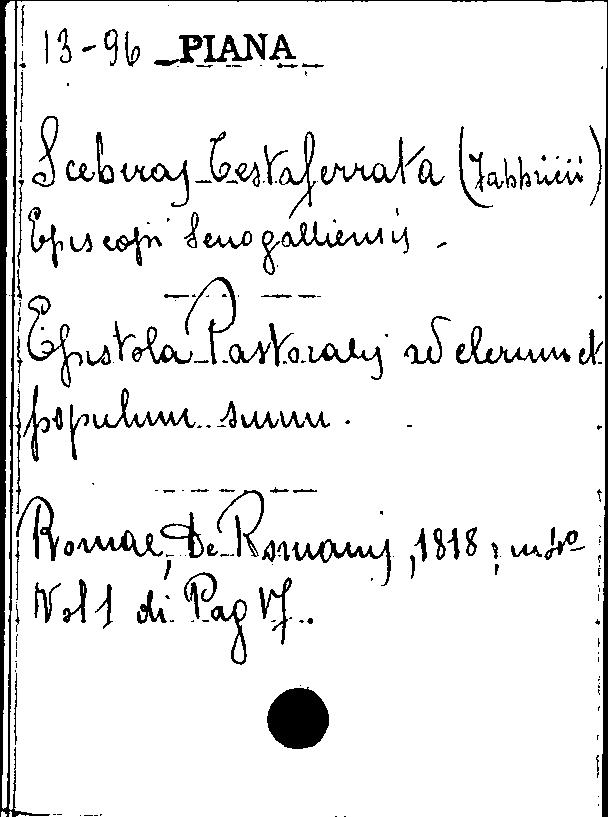 13-96 PIANA
Sceberas Testaferrata (Fabbricii)
Episcopi Senogalliensis.
Epistola Pastoralis ad clerum et
populum suum.
Romae, De Romanis, 1818; in 4º
Vol 1 di Pag 17.